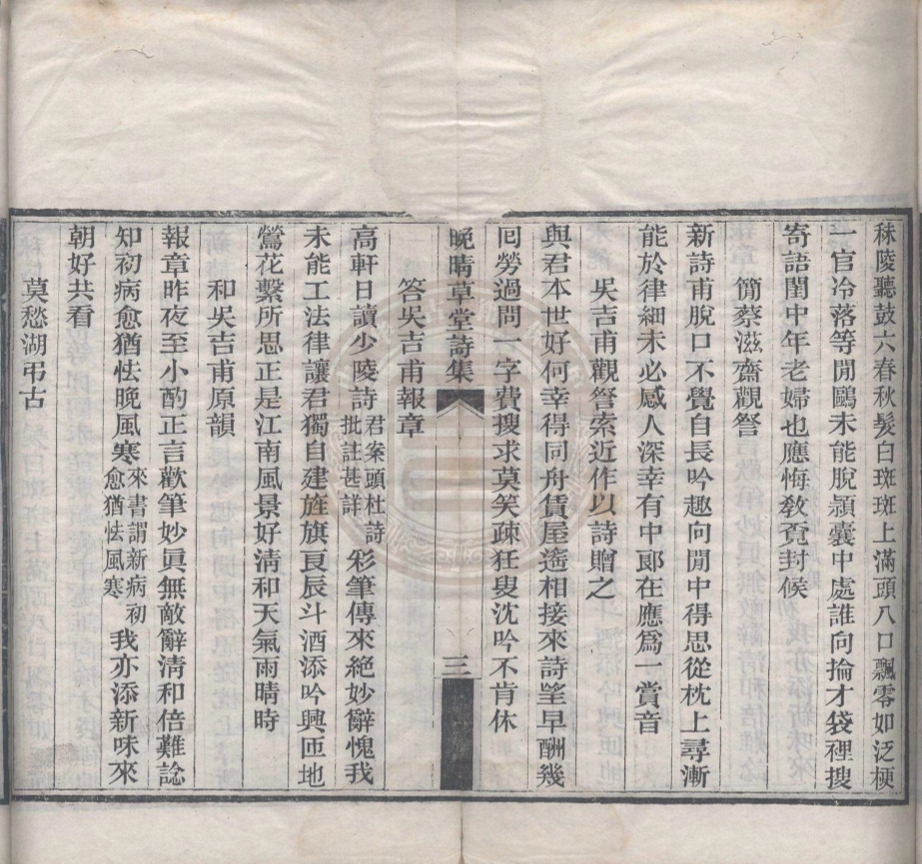 秣陵聽鼓六春秋髮白斑斑上滿頭八口飄零如泛梗
一官冷落等閒鷗未能脫潁囊中處誰向掄才袋裡搜
寄語閨中年老婦也應悔敎覓封候
簡蔡滋齋觀詧
新詩甫脫口不覺自長吟趣向閒中得思從枕上尋漸
能於律細未必感人深幸有中郞在應爲一賞音
吳吉甫觀詧索近作以詩贈之
與君本世好何幸得同舟賃屋遙相接來詩望早酬幾
囘勞過問一字費搜求莫笑疎狂叟沈吟不肯休
晚晴草堂詩集
三
答吳吉甫報章
高軒日讀少陵詩君案頭杜詩批註甚詳彩筆傳來絕妙辭愧我
未能工法律讓君獨自建旌旗良辰斗酒添吟興匝地
鶯花繫所思正是江南風景好淸和天氣雨晴時
和吳吉甫原韻
報章昨夜至小酌正言歡筆妙眞無敵辭淸和倍難諗
知初病愈猶怯晚風寒來書謂新病初愈猶怯風寒我亦添新味來
朝好共看
莫愁湖弔古